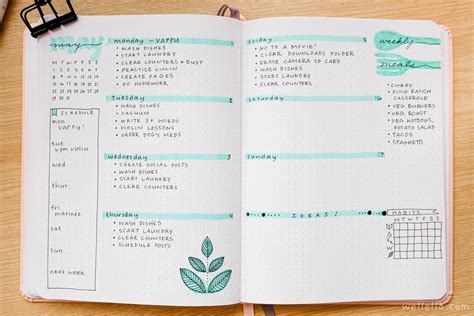 may
M T W T F S S
SCHEDULE
mon
VAPPU!
tue
4pm violin
wed
thur
fri
matinee
sat
sun
next week
monday - VAPPU
• WASH DISHES
• START LAUNDRY
• CLEAR COUNTERS + DUST
• PRACTICE VIOLIN
• CREATE PAGES
• DO HOMEWORK
tuesday
• WASH DISHES
• VACUUM
• WRITE 3K WORDS
• VIOLIN LESSONS
• ORDER DOG MEDS
wednesday 3
• CREATE SOCIAL POSTS
• WASH DISHES
• START LAUNDRY
• CLEAR COUNTERS
thursday 4
• WASH DISHES
• START LAUNDRY
• CLEAR COUNTERS
• SCHEDULE POSTS
friday 5
• GO TO A MOVIE!
• CLEAR DOWNLOADS FOLDER
• ERASE CAMERA SD CARD
• WASH DISHES
• START LAUNDRY
• CLEAR COUNTERS
saturday 6
sunday
IDEAS!
weekly
meals
• CURRY
• KING RANCH
CASSEROLE
• VEG BURGERS
• VEG ROAST
• VEG HOTDOGS,
POTATO SALAD
• TACOS
• SPAGHETTI
HABITS
M T W T F S S
wellella.com